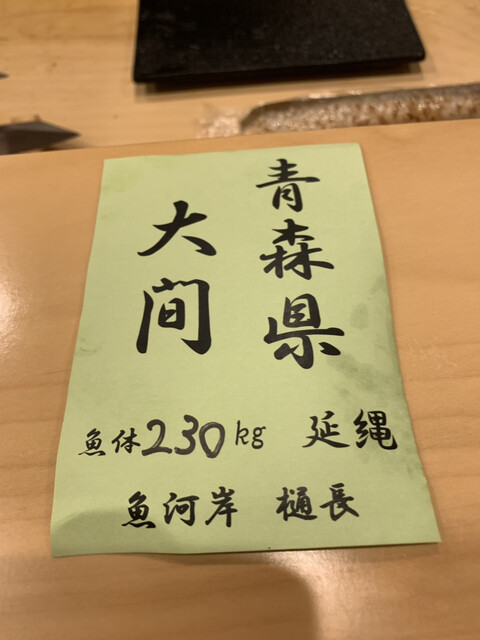 青森県
大間
魚体230kg 延縄
魚河岸 樋長